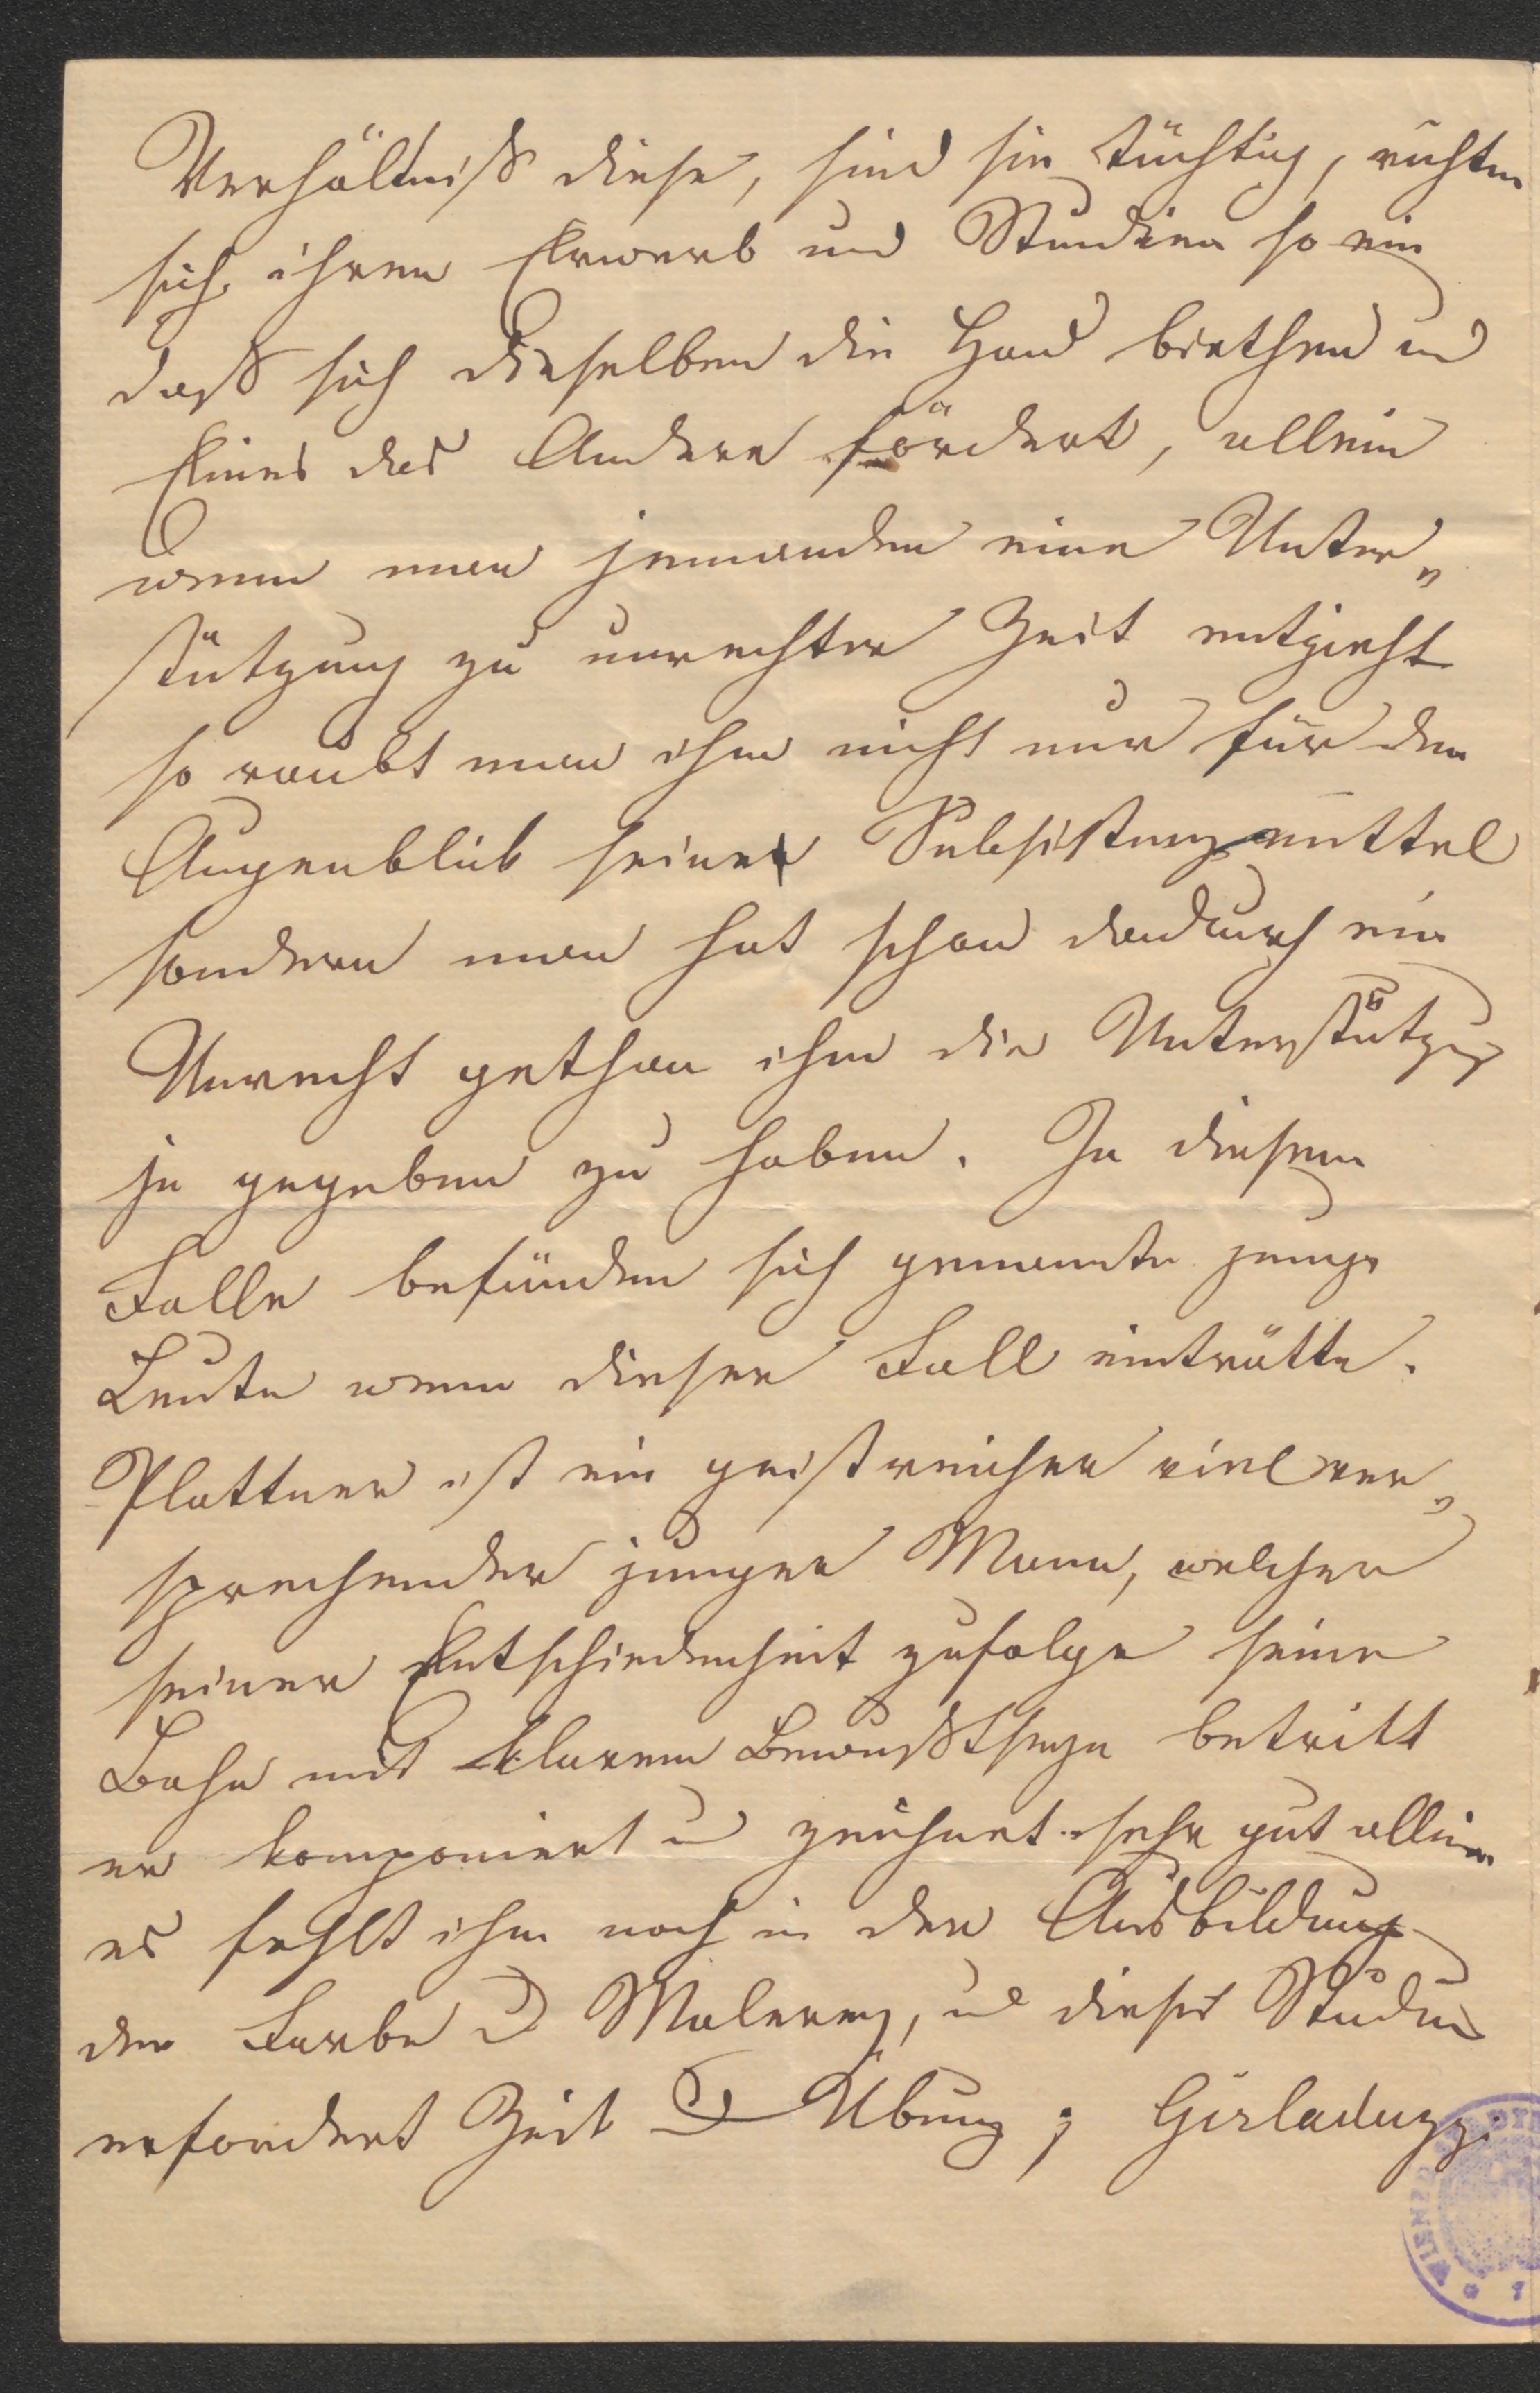 Verhältniß diese, sind sie tüchtig, richten
sich ihren Erwerb und Studien so ein
daß sich dieselben die Hand biethen und
Eines das Andere fördert, allein
wenn man jemanden eine Unter„
stützung zu unrechter Zeit entzieht
so raubt man ihm nicht nur für den
Augenblick seine Subsistenzmittel
sondern man hat schon dadurch ein
Unrecht gethan ihm die Unterstützung
je gegeben zu haben. In diesem
Falle befünden sich genannte junge
Leute wenn dieser Fall einträtte.
Plattner ist ein geistreicher vielver„
sprechender junger Mann, welcher
seiner Entschiedenheit zufolge seine
Bahn mit klarem Bewußtseyn betritt
er komponiert u zeichnet sehr gut allein
es fehlt ihm noch in der Ausbildung
der Farbe u Malerey, und dieses Studium
erfordert Zeit u Übung; Girladuzzi
WIENER STADT